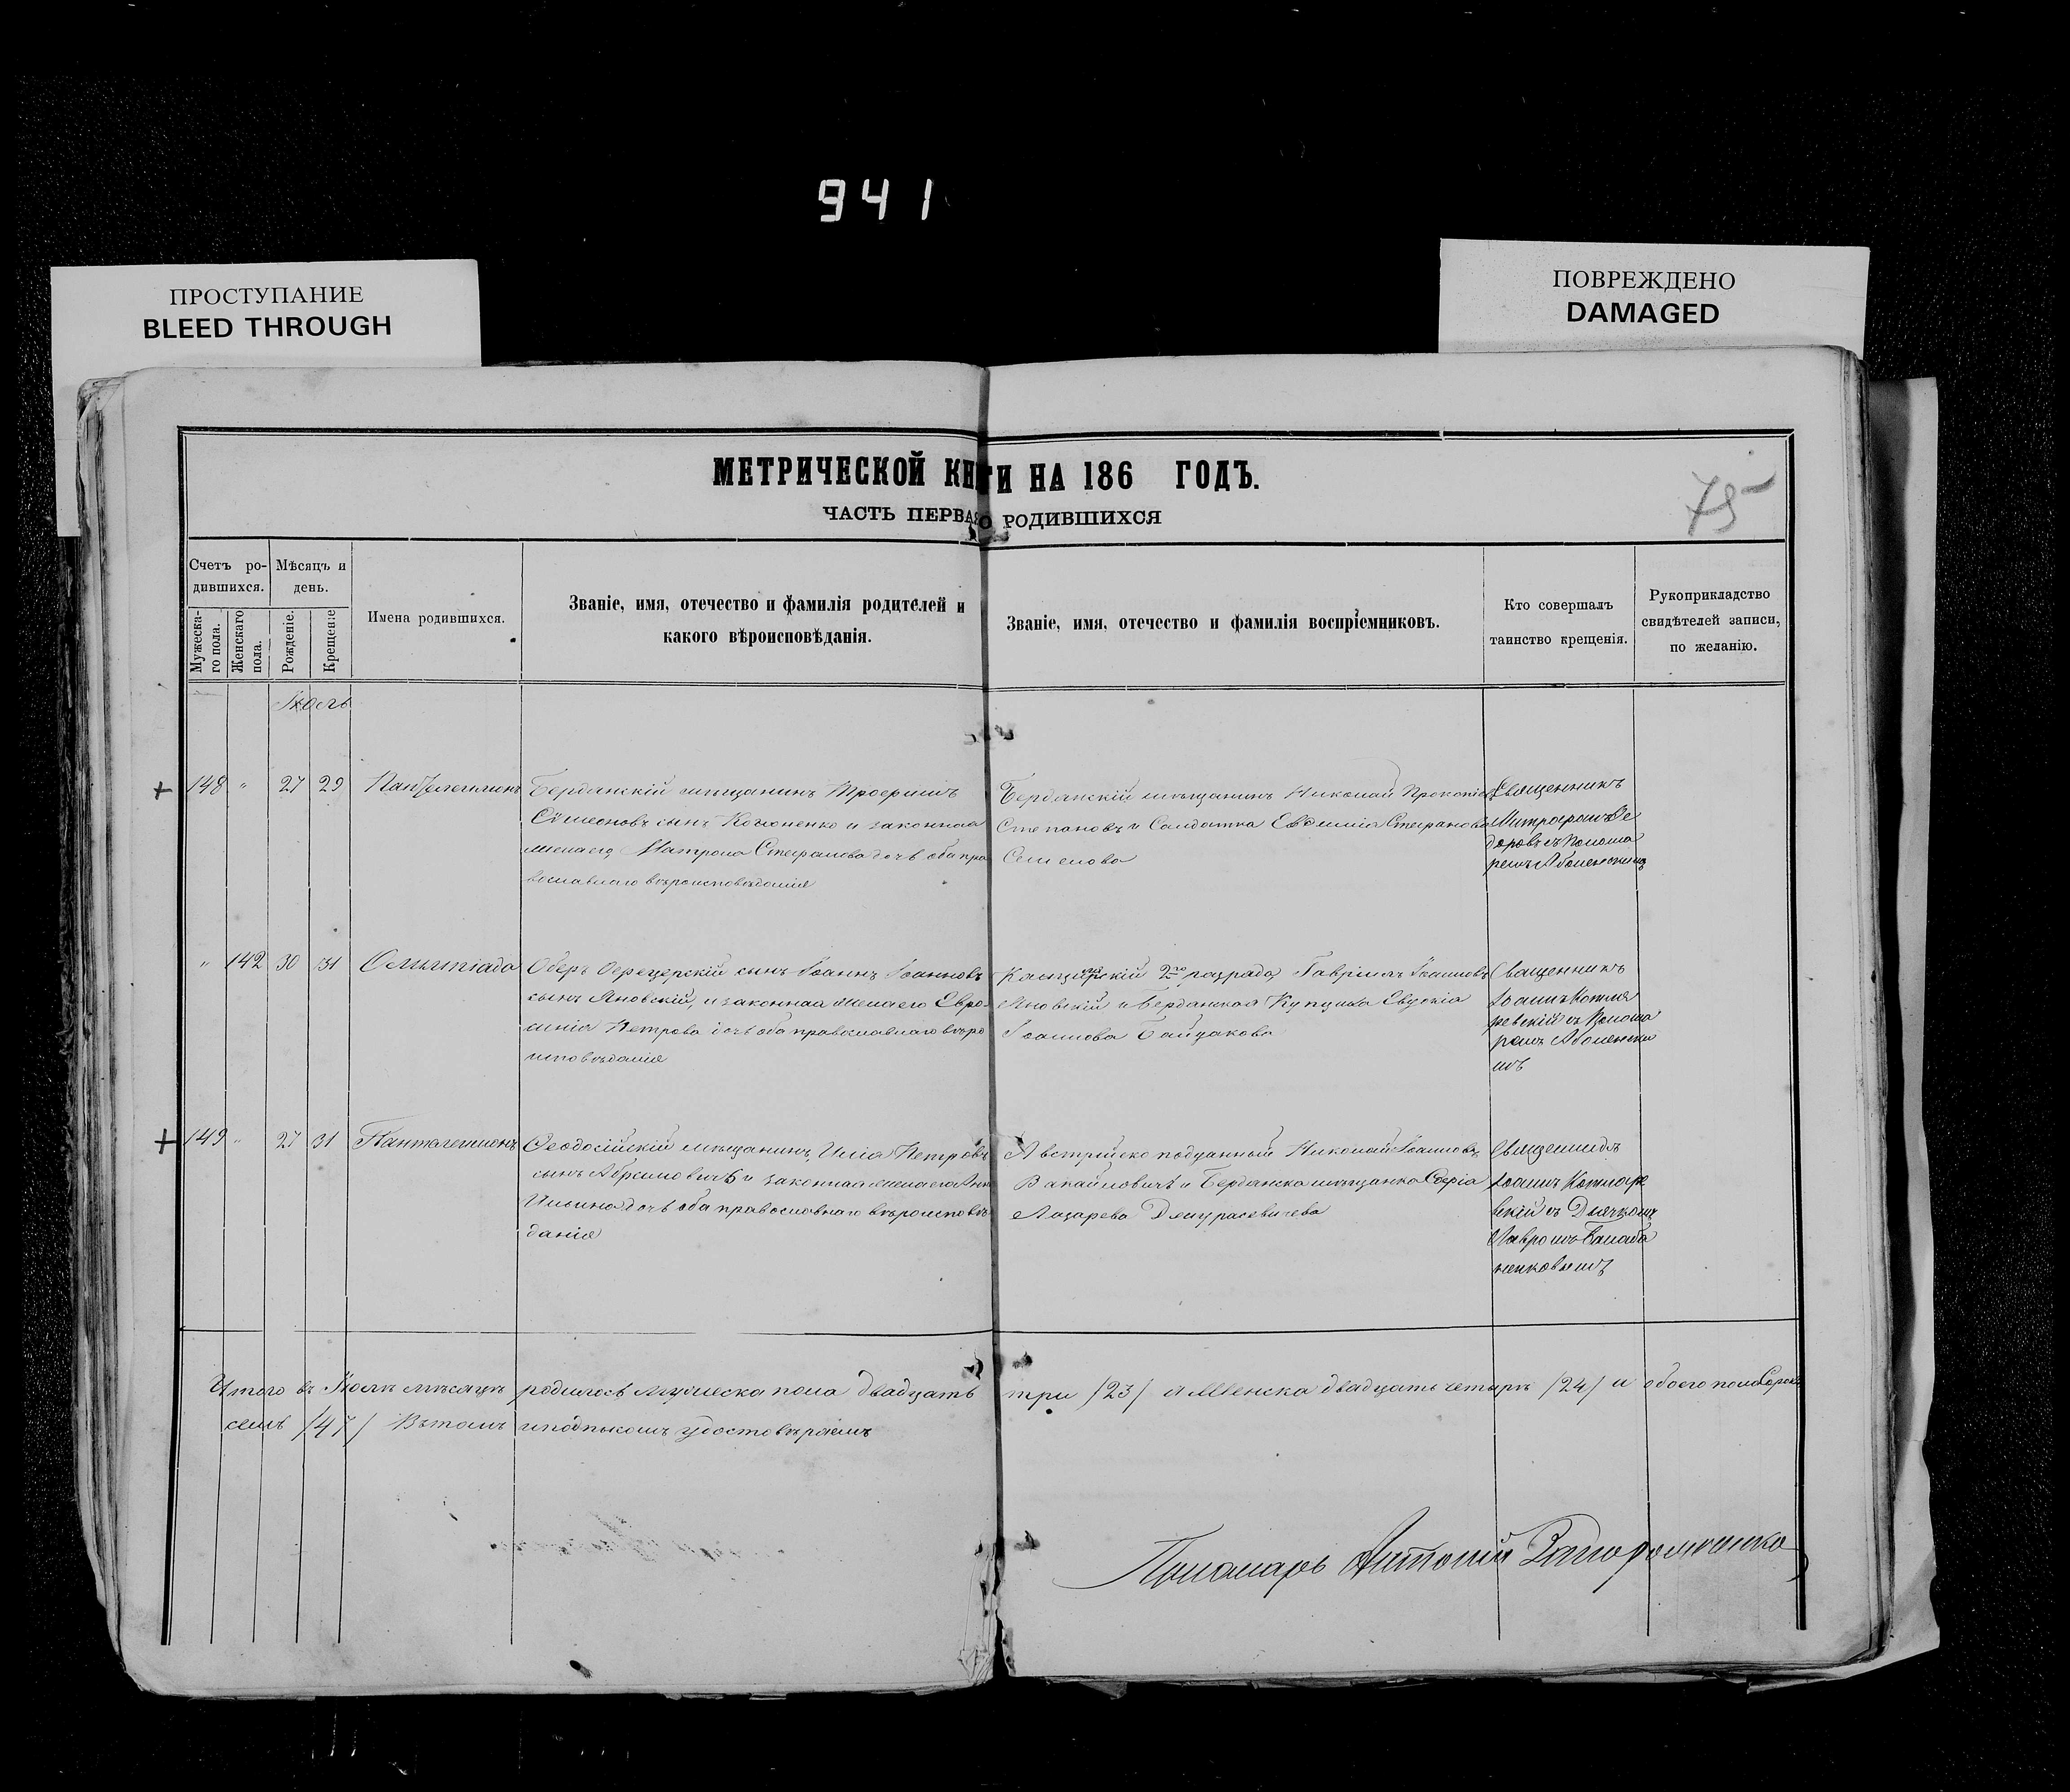 941
ПРОСТУПАНИЕ
BLEED THROUGH
ПОВРЕЖДЕНО
DAMAGED
МЕТРИЧЕСКОЙ КНИГИ НА 186 ГОДЪ.
ЧАСТЬ ПЕРВАЯ О РОДИВШИХСЯ
75
Счетъ ро-
дившихся.
Мужеска-
го пола.
Женскаго
пола.
Мѣсяцъ и
день.
Рожденіе.
Крещеніе
Имена родившихся.
Званіе, имя, отечество и фамилія родителей и
какого вѣроисповѣданія.
Званіе, имя, отечество и фамилія воспріемниковъ.
Кто совершалъ
таинство крещенія.
Рукоприкладство
свидѣтелей записи,
по желанію.
Іюль
+ 148 " 27 29 Пантелеимонъ
Бердянскій мѣщанинъ Трофимъ
Сѵмеоновъ сынъ и законная
жена его Матрона Стефанова дочь оба пра
вославнаго вѣроисповѣданія
Бердянскій мѣщанинъ Николай Прокопіевъ
Степановъ и Солдатка Евфимія Стефанова
Семенова
Священникъ
Митрофанъ Ѳе
доровъ съ Понома
ремъ
" 142 30 31 Олимпіада
Оберъ Офицерскій сынъ Іоаннъ Іоанновъ
сынъ Яновскій, и законная жена его Евфро
синія Петрова дочь оба православнаго вѣро
исповѣданія
2го разряда Гавріилъ Іоанновъ
Яновскій и Бердянская Купчиха Евдокія
Іоаннова Байдакова
Священникъ
Іоаннъ Котля
ревскій съ Понома
ремъ
+ 149 " 27 31 Пантелеимонъ
Ѳеодосійскій мѣщанинъ Илія Петровъ
сынъ Абрамовичъ и законная жена его Анна
Ильина дочь оба православнаго вѣроисповѣ
данія
Австрійско подданный Николай Іоанновъ
и Бердянска мѣщанка Софія
Лазарева
Священникъ
Іоаннъ Котляре
вскій съ Дьячкомъ
Лавромъ
Итого въ Іюлѣ мѣсяцѣ родилось мужеска пола двадцать три /23/ а женска двадцать четыре /24/ и обоего пола Сорокъ
семь /47/ Въ томъ и подпискомъ удостовѣряемъ
Пономарь Антоній